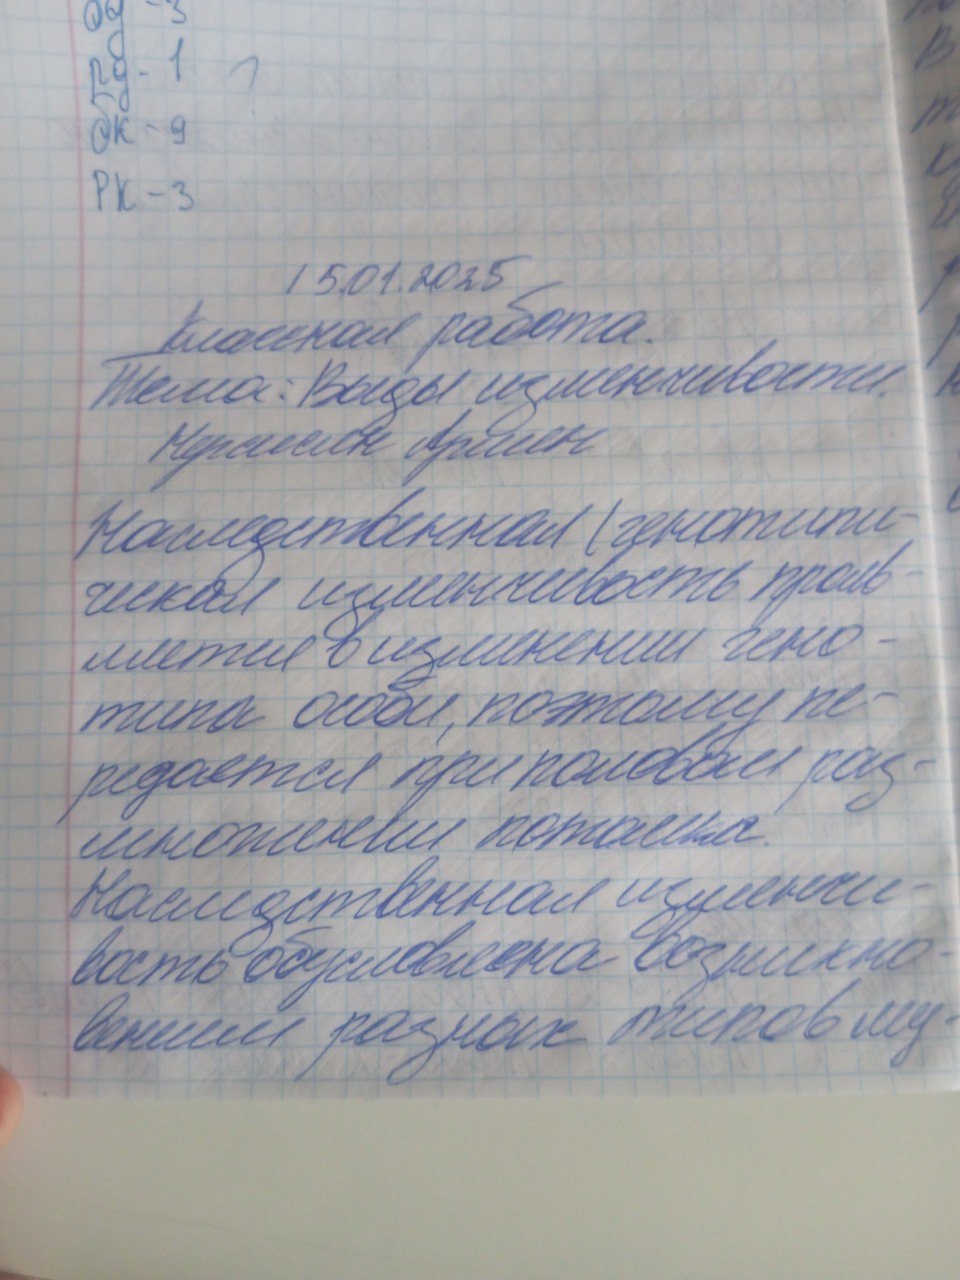 ФД - 3
РД - 1
ФК - 9
РК - 3
15.01.2025
Классная работа.
Тема: Виды изменчивости.
Наследственная (генотипи-
ческая изменчивость прояв-
ляется в изменении гено-
типа особи, поэтому пе-
редается при половом раз-
множении потомка.
Наследственная изменчи-
вость обусловлена возникно-
вением разных типов му-